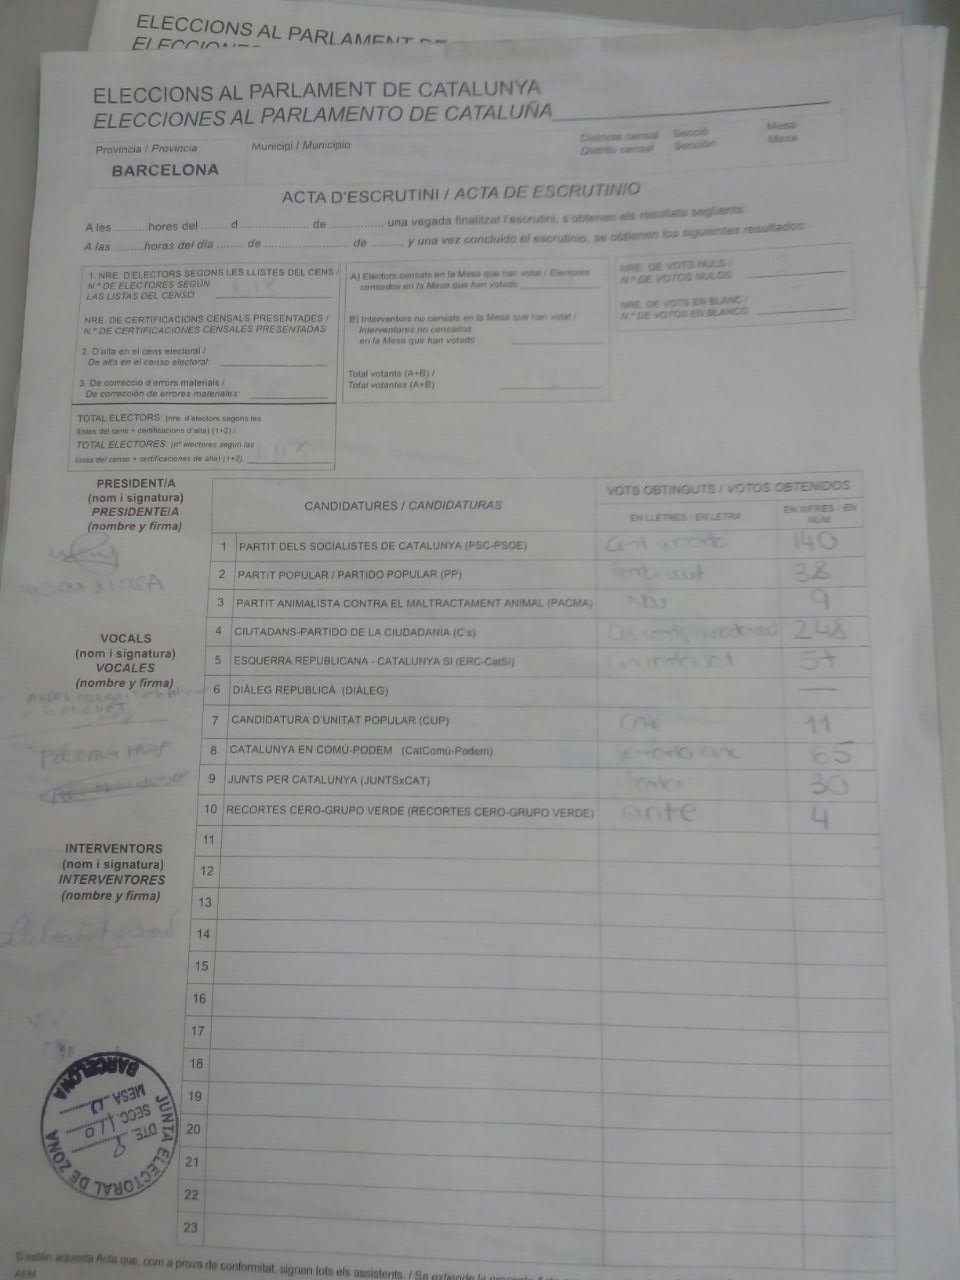 ELECCIONS AL PARLAMENT DE
ELECCIONES
ELECCIONS AL PARLAMENT DE CATALUNYA
ELECCIONES AL PARLAMENTO DE CATALUÑA
Provincia / Provincia
BARCELONA
Municipi / Municipio
Districte censal
Distrito censal
Secció
Sección
Mesa
Mesa
ACTA D'ESCRUTINI / ACTA DE ESCRUTINIO
A les ......... hores del ....... d ...................... de ........., una vegada finalitzat l'escrutini, s'obtenen els resultats següents:
A las ......... horas del día ....... de ...................... de ........., y una vez concluido el escrutinio, se obtienen los siguientes resultados:
1. NRE. D'ELECTORS SEGONS LES LLISTES DEL CENS /
N.º DE ELECTORES SEGÚN
LAS LISTAS DEL CENSO
NRE. DE CERTIFICACIONS CENSALS PRESENTADES /
N.º DE CERTIFICACIONES CENSALES PRESENTADAS
2. D'alta en el cens electoral /
De alta en el censo electoral:
3. De correcció d'errors materials /
De corrección de errores materiales:
TOTAL ELECTORS: (nre. d'electors segons les
llistes del cens + certificacions d'alta) (1+2) /
TOTAL ELECTORES: (nº electores según las
listas del censo + certificaciones de alta) (1+2)
A) Electors censats en la Mesa que han votat / Electores
censados en la Mesa que han votado
B) Interventors no censats en la Mesa que han votat /
Interventores no censados
en la Mesa que han votado
Total votants (A+B) /
Total votantes (A+B)
NRE. DE VOTS NULS /
N.º DE VOTOS NULOS
NRE. DE VOTS EN BLANC /
N.º DE VOTOS EN BLANCO
PRESIDENT/A
(nom i signatura)
PRESIDENTE/A
(nombre y firma)
VOCALS
(nom i signatura)
VOCALES
(nombre y firma)
INTERVENTORS
(nom i signatura)
INTERVENTORES
(nombre y firma)
CANDIDATURES / CANDIDATURAS
VOTS OBTINGUTS / VOTOS OBTENIDOS
EN LLETRES / EN LETRA
EN XIFRES / EN NÚM.
1 PARTIT DELS SOCIALISTES DE CATALUNYA (PSC-PSOE) 140
2 PARTIT POPULAR / PARTIDO POPULAR (PP) 38
3 PARTIT ANIMALISTA CONTRA EL MALTRACTAMENT ANIMAL (PACMA) Nou 9
4 CIUTADANS-PARTIDO DE LA CIUDADANÍA (C's) 248
5 ESQUERRA REPUBLICANA - CATALUNYA SI (ERC-CatSí) 57
6 DIÀLEG REPUBLICÀ (DIÀLEG) —
7 CANDIDATURA D'UNITAT POPULAR (CUP) 11
8 CATALUNYA EN COMÚ-PODEM (CatComú-Podem) 65
9 JUNTS PER CATALUNYA (JUNTSxCAT) 30
10 RECORTES CERO-GRUPO VERDE (RECORTES CERO-GRUPO VERDE) 4
11
12
13
14
15
16
17
18
19
20
21
22
23
JUNTA ELECTORAL DE ZONA
BARCELONA
DTE.
SECC.
MESA
S'estén aquesta Acta que, com a prova de conformitat, signen tots els assistents. / Se extiende la presente